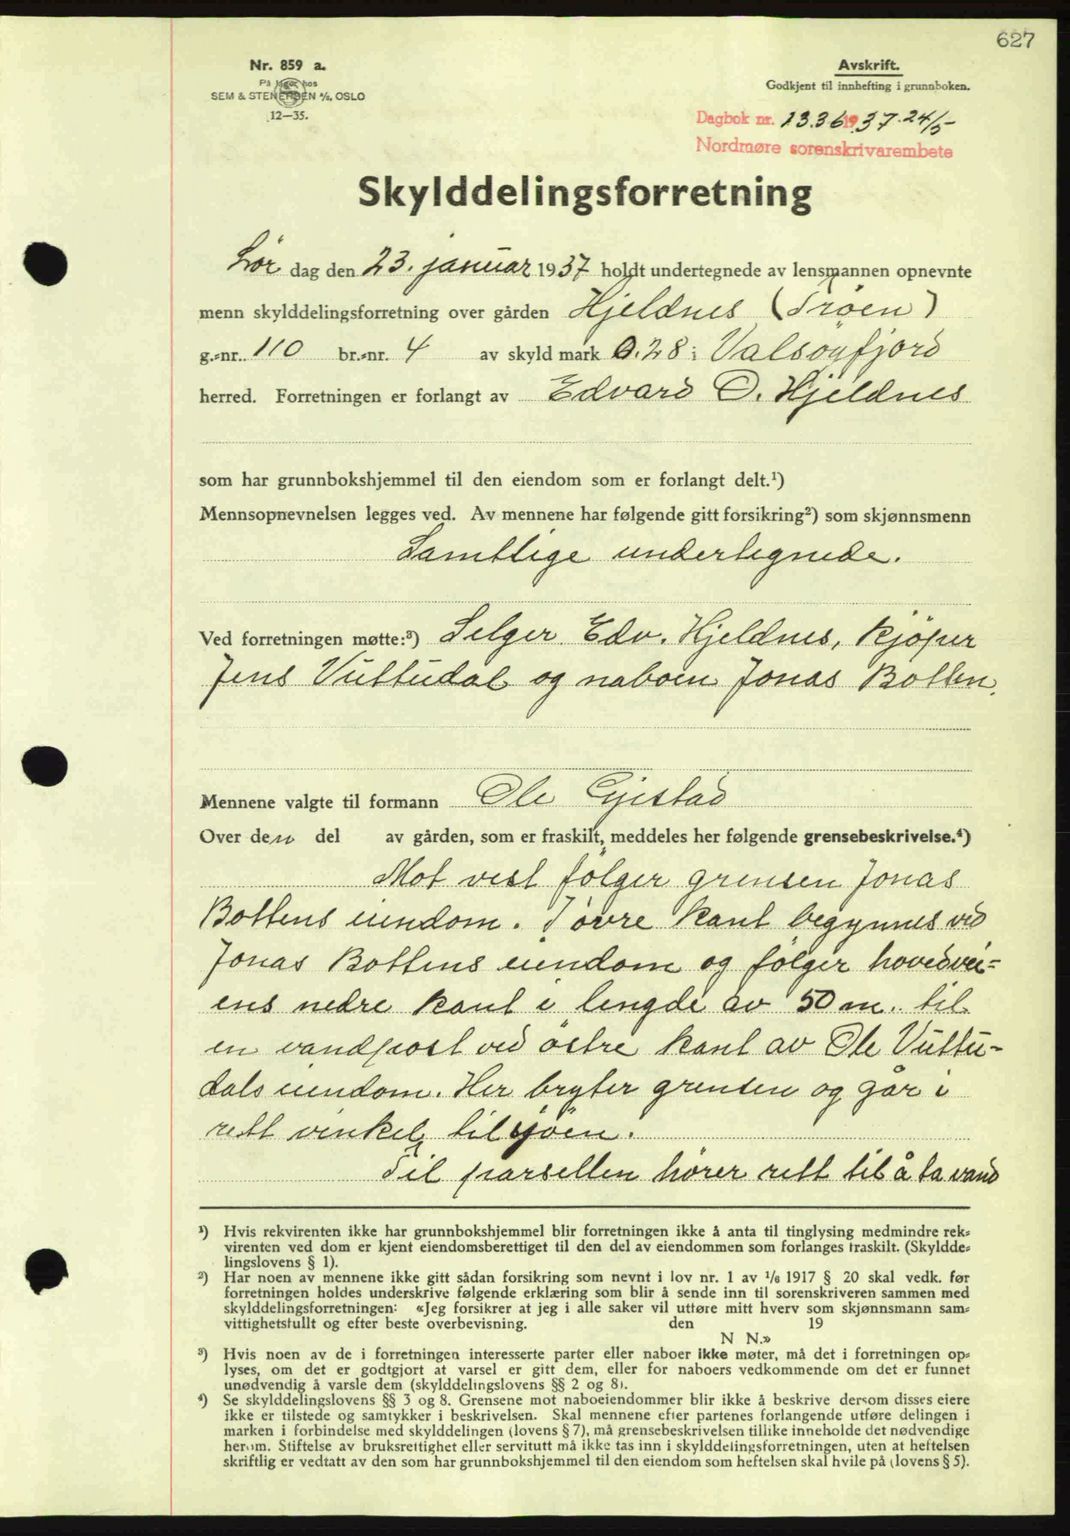 627
Nr. 859 a.
På lager hos
SEM & STENERSEN A/S, OSLO
12—35.
Avskrift.
Godkjent til innhefting i grunnboken.
Dagbok nr. 1336 1937. 24/5
Nordmøre sorenskrivarembete
Skylddelingsforretning
Lør dag den 23. januar 1937 holdt undertegnede av lensmannen opnevnte
menn skylddelingsforretning over gården Hjeldnes (Trøen)
g.-nr. 110 br.-nr. 4 av skyld mark 0.28 i Valsøyfjord
herred. Forretningen er forlangt av Edvard O. Hjeldnes
som har grunnbokshjemmel til den eiendom som er forlangt delt.¹)
Mennsopnevnelsen legges ved. Av mennene har følgende gitt forsikring²) som skjønnsmenn
Samtlige undertegnede.
Ved forretningen møtte:³) Selger Edv. Hjeldnes, kjöper
Jens Vuttudal og naboen Jonas Botten.
Mennene valgte til formann Ole Gjestad
Over den del av gården, som er fraskilt, meddeles her følgende grensebeskrivelse.⁴)
Mot vest fölger grensen Jonas
Bottens eiendom. I øvre kant begynnes ved
Jonas Bottens eiendom og fölger hovedvei-
ens nedre kant i lengde av 50 m. til
en vandpost ved östre kant av Ole Vuttu-
dals eiendom. Her bryter grensen og går i
rett vinkel til sjöen.
Til parsellen hører rett til å ta vand
¹) Hvis rekvirenten ikke har grunnbokshjemmel blir forretningen ikke å anta til tinglysing medmindre rek-
virenten ved dom er kjent eiendomsberettiget til den del av eiendommen som forlanges fraskilt. (Skyldde-
lingslovens § 1).
²) Har noen av mennene ikke gitt sådan forsikring som nevnt i lov nr. 1 av 1/6 1917 § 20 skal vedk. før
forretningen holdes underskrive følgende erklæring som blir å sende inn til sorenskriveren sammen med
skylddelingsforretningen: «Jeg forsikrer at jeg i alle saker vil utføre mitt hverv som skjønnsmann sam-
vittighetsfullt og efter beste overbevisning. den 19
N N.»
³) Hvis noen av de i forretningen interesserte parter eller naboer ikke møter, må det i forretningen op-
lyses, om det er godtgjort at varsel er gitt dem, eller for naboers vedkommende om det er funnet
unødvendig å varsle dem (skylddelingslovens §§ 2 og 8).
⁴) Se skylddelingslovens §§ 3 og 8. Grensene mot naboeiendommer blir ikke å beskrive dersom disses eiere
ikke er tilstede og samtykker i beskrivelsen. Skal mennene efter partenes forlangende utføre delingen i
marken i forbindelse med skylddelingen (lovens § 7), må grensebeskrivelsen tillike inneholde det nødvendige
herom. Stiftelse av bruksrettighet eller servitutt må ikke tas inn i skylddelingsforretningen, uten at heftelsen
skriftlig er vedtatt av den som har grunnbokshjemmel til den eiendom som heftelsen skal hvile på (lovens § 5).